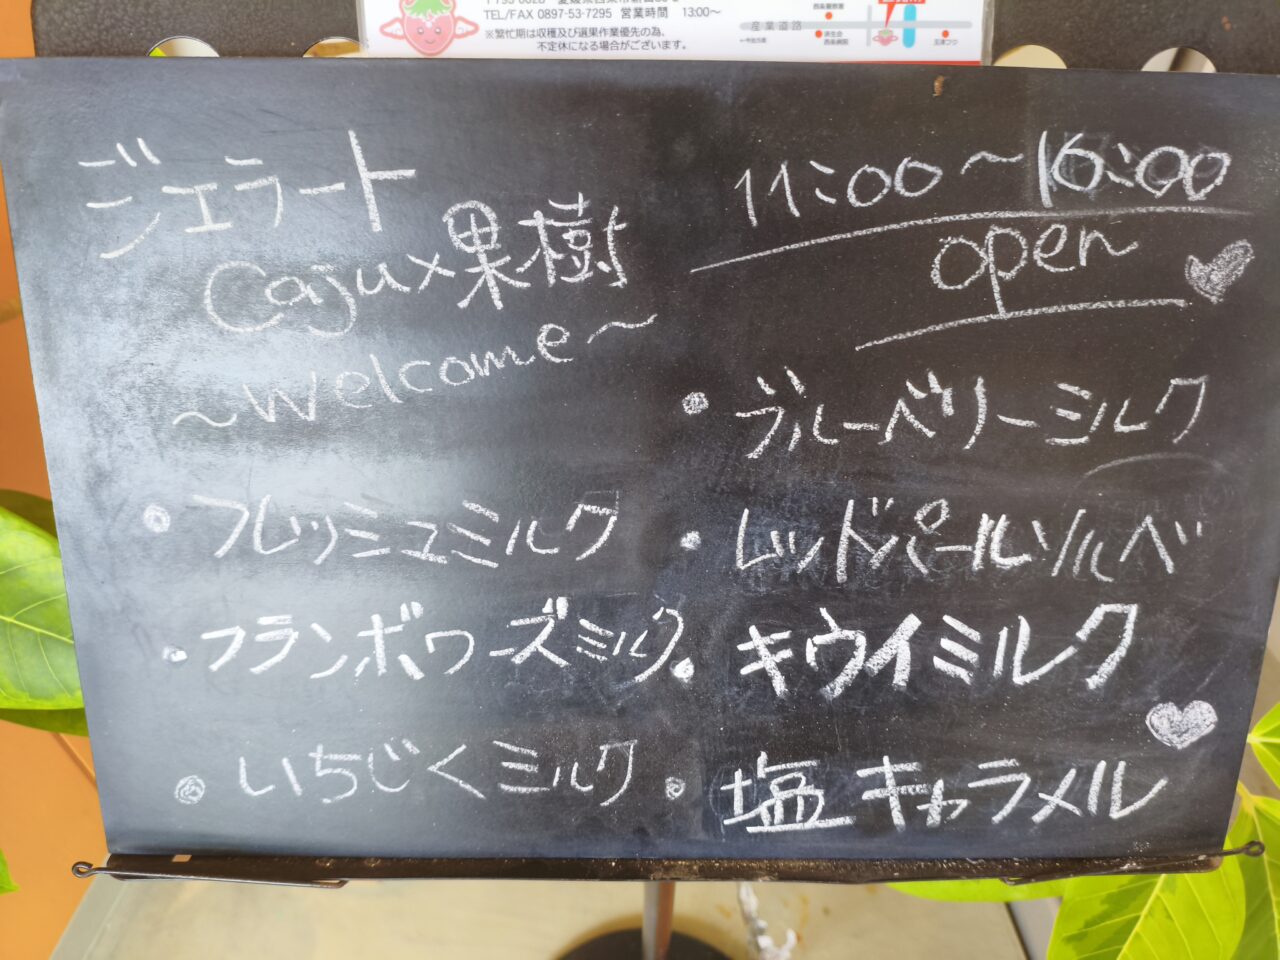 TEL/FAX 0897-53-7295 営業時間 13:00〜
※繁忙期は収穫及び選果作業優先の為、
不定休になる場合がございます。
産業道路
ジェラート
Caju×果樹
〜Welcome〜
11:00〜16:00
open
・ブルーベリーミルク
・フレッシュミルク
・レッドパールソルベ
・フランボワーズミルク
・キウイミルク
・いちじくミルク
・塩キャラメル